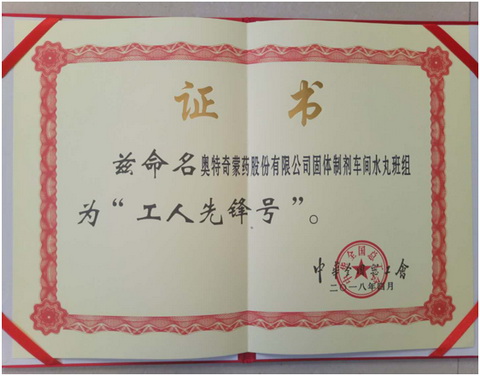 证书
兹命名奥特奇蒙药股份有限公司固体制剂车间水丸班组
为“工人先锋号”。
中华全国总工會
二〇一八年四月